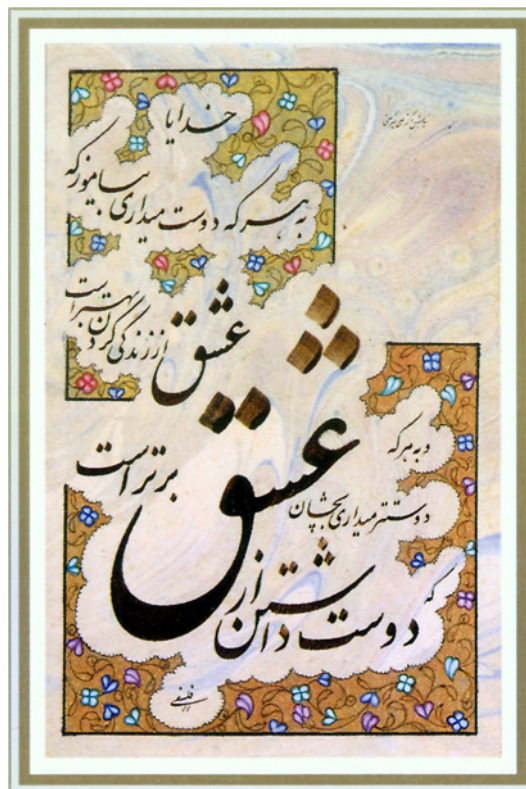 خدایا
به هر که دوست میداری بیاموز که
عشق
از زندگی کردن بهتر است
و به هر که
دوستتر میداری بچشان
که
دوست داشتن از
عشق
برتر است
فلسفی